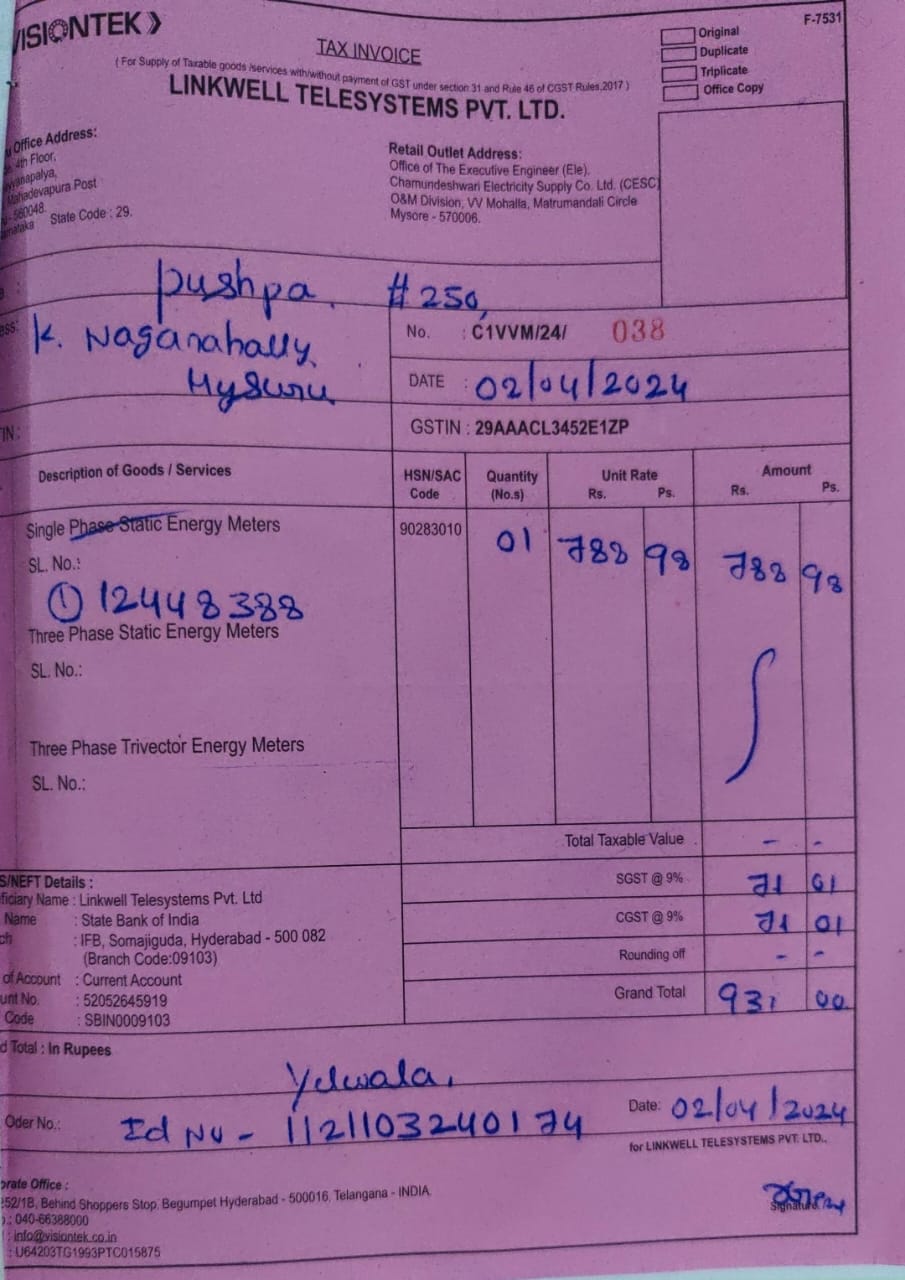 VISIONTEK
F-7531
TAX INVOICE
( For Supply of Taxable goods /services with/without payment of GST under section 31 and Rule 46 of CGST Rules,2017 )
LINKWELL TELESYSTEMS PVT. LTD.
Original
Duplicate
Triplicate
Office Copy
Office Address:
4th Floor,
Mahadevapura Post
560048.
State Code : 29.
Retail Outlet Address:
Office of The Executive Engineer (Ele).
Chamundeshwari Electricity Supply Co. Ltd. (CESC)
O&M Division, VV Mohalla, Matrumandali Circle
Mysore - 570006.
pushpa. #250,
K. Naganahally,
Mysuru
No. : C1VVM/24/ 038
DATE : 02/04/2024
GSTIN : 29AAACL3452E1ZP
Description of Goods / Services HSN/SAC Code Quantity (No.s) Unit Rate Rs. Ps. Amount Rs. Ps.
Single Phase Static Energy Meters 90283010 01 788 98 788 98
SL. No.:
① 12448388
Three Phase Static Energy Meters
SL. No.:
Three Phase Trivector Energy Meters
SL. No.:
Total Taxable Value - -
SGST @ 9% 71 01
CGST @ 9% 71 01
Rounding off - -
Grand Total 931 00
S/NEFT Details :
ficiary Name : Linkwell Telesystems Pvt. Ltd
Name : State Bank of India
ch : IFB, Somajiguda, Hyderabad - 500 082
(Branch Code:09103)
of Account : Current Account
unt No. : 52052645919
Code : SBIN0009103
d Total : In Rupees
Yelwala,
Oder No.: Id No - 1121103240174
Date: 02/04/2024
for LINKWELL TELESYSTEMS PVT. LTD.,
Signature
orate Office :
252/1B, Behind Shoppers Stop, Begumpet Hyderabad - 500016, Telangana - INDIA.
: 040-66388000
: info@visiontek.co.in
: U64203TG1993PTC015875